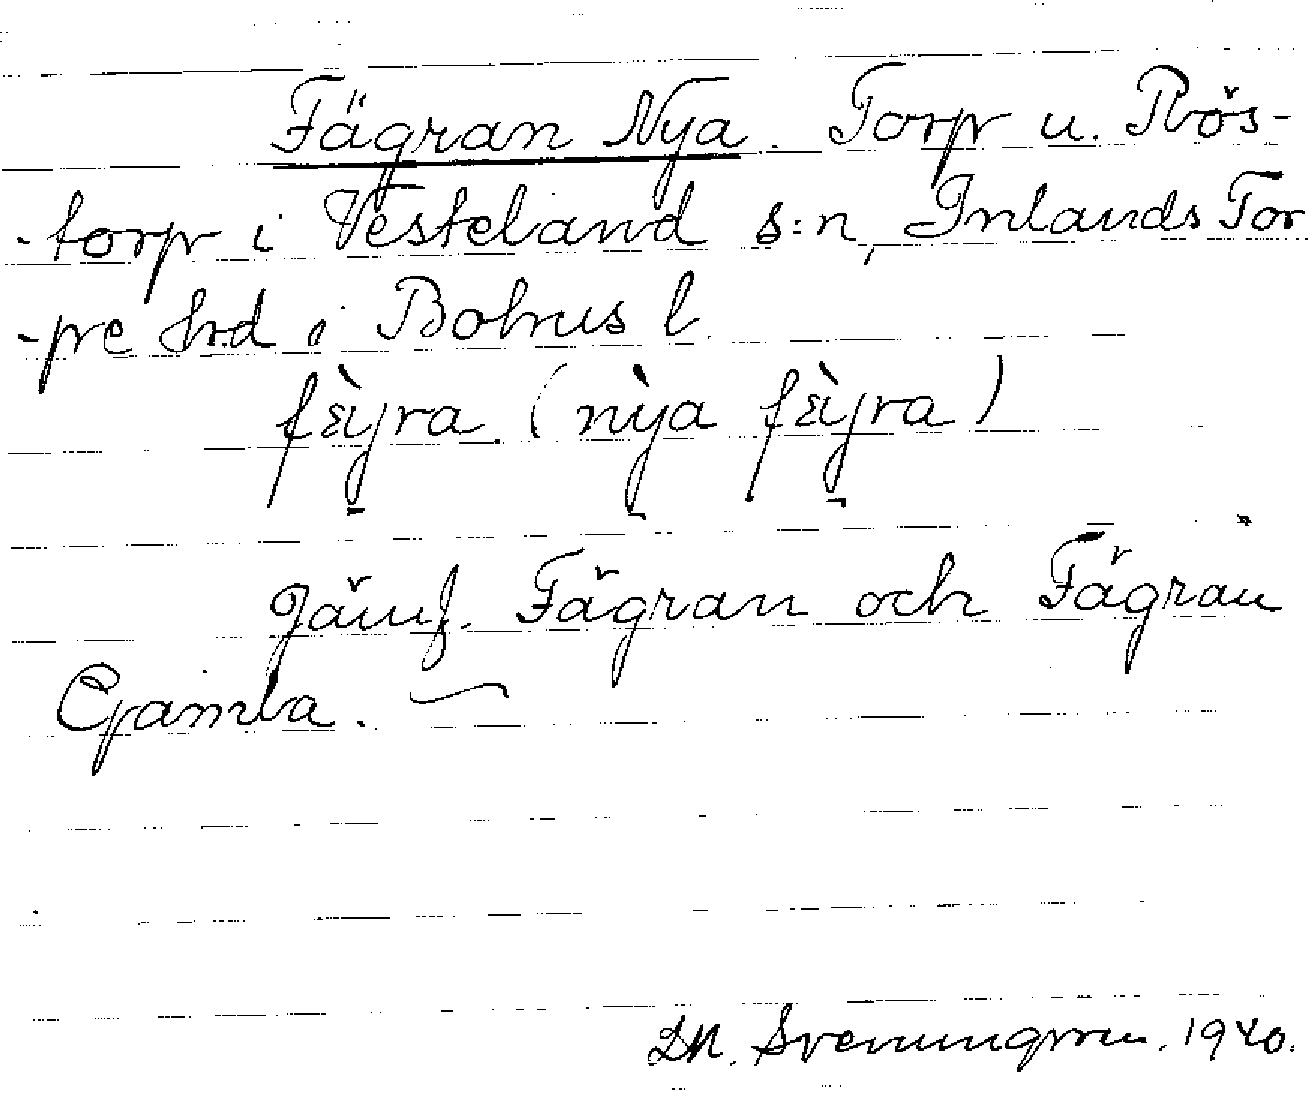 Fägran Nya. Torp u. Rös-
-torp i Vesteland s:n, Inlands Tor
-pe hrd i Bohus l.
fɛ̀jra (nỳa fɛ̀jra)
Jämf. Fägran och Fägran
Gamla.
D.N. Svenungsson. 1940.